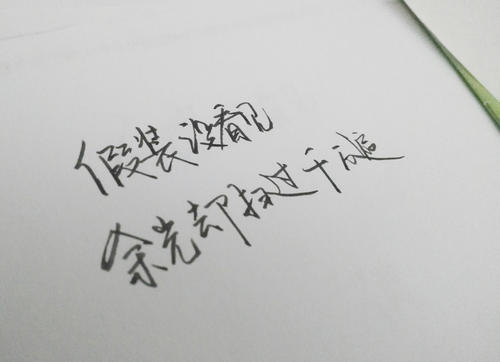 假装没看见
余光却扫过千百遍